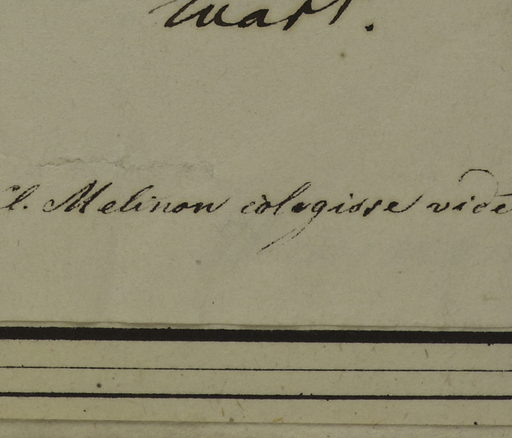 Cl. Melinon cologisse vide